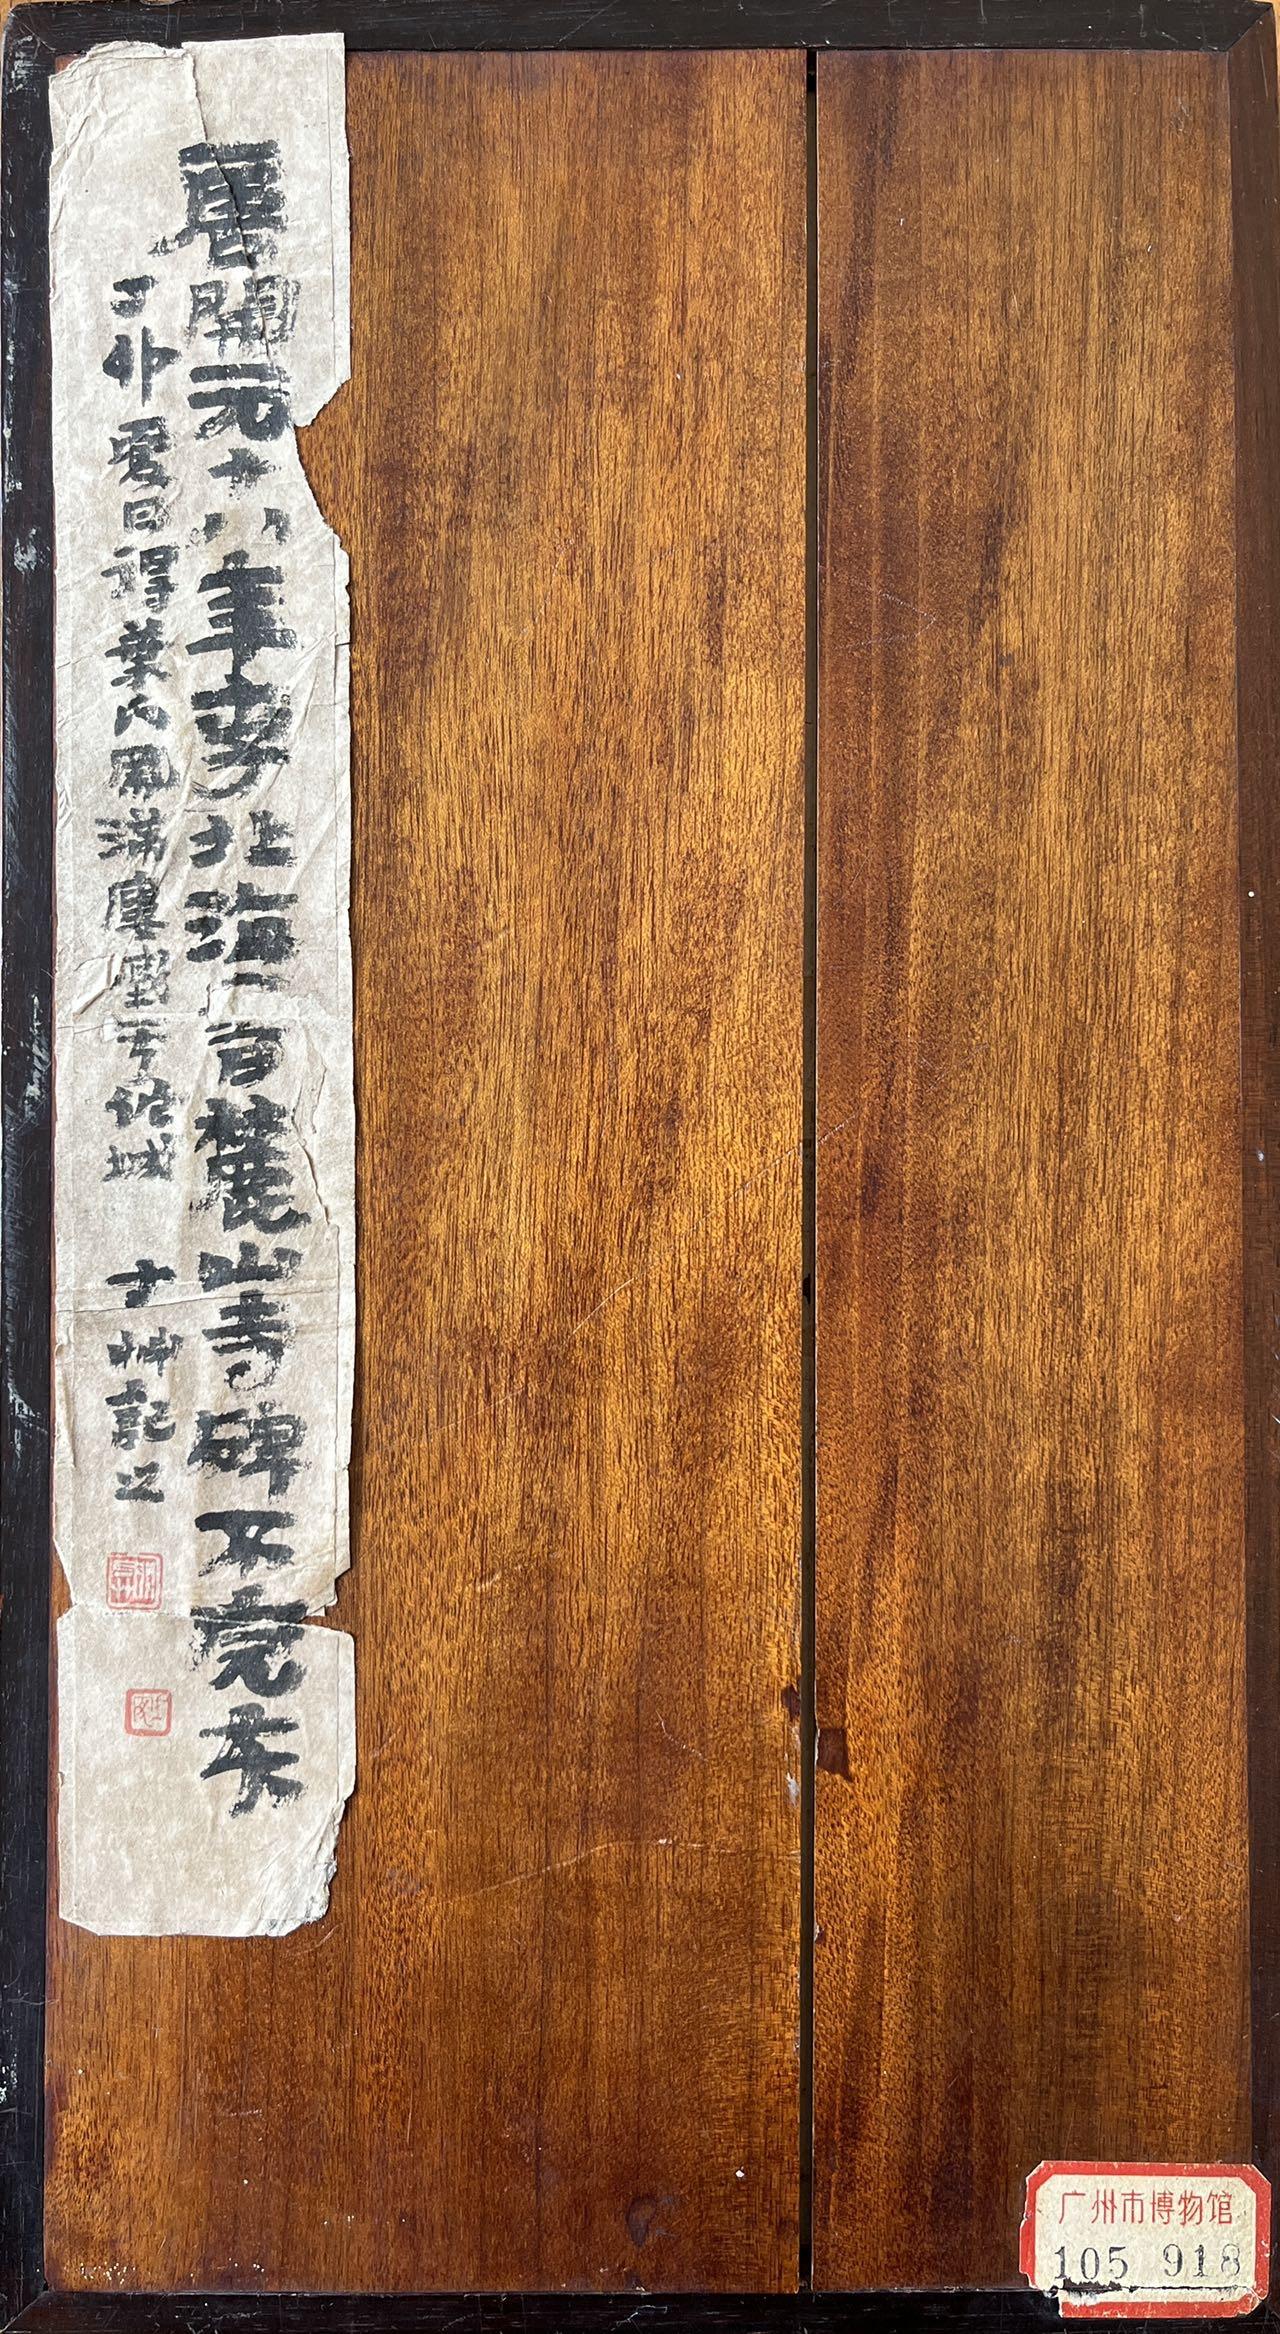 唐開元十八年李北海書麓山寺碑不完本
丁卯夏日得葉氏風滿廔于佗城 艸記之
广州市博物馆
105 918